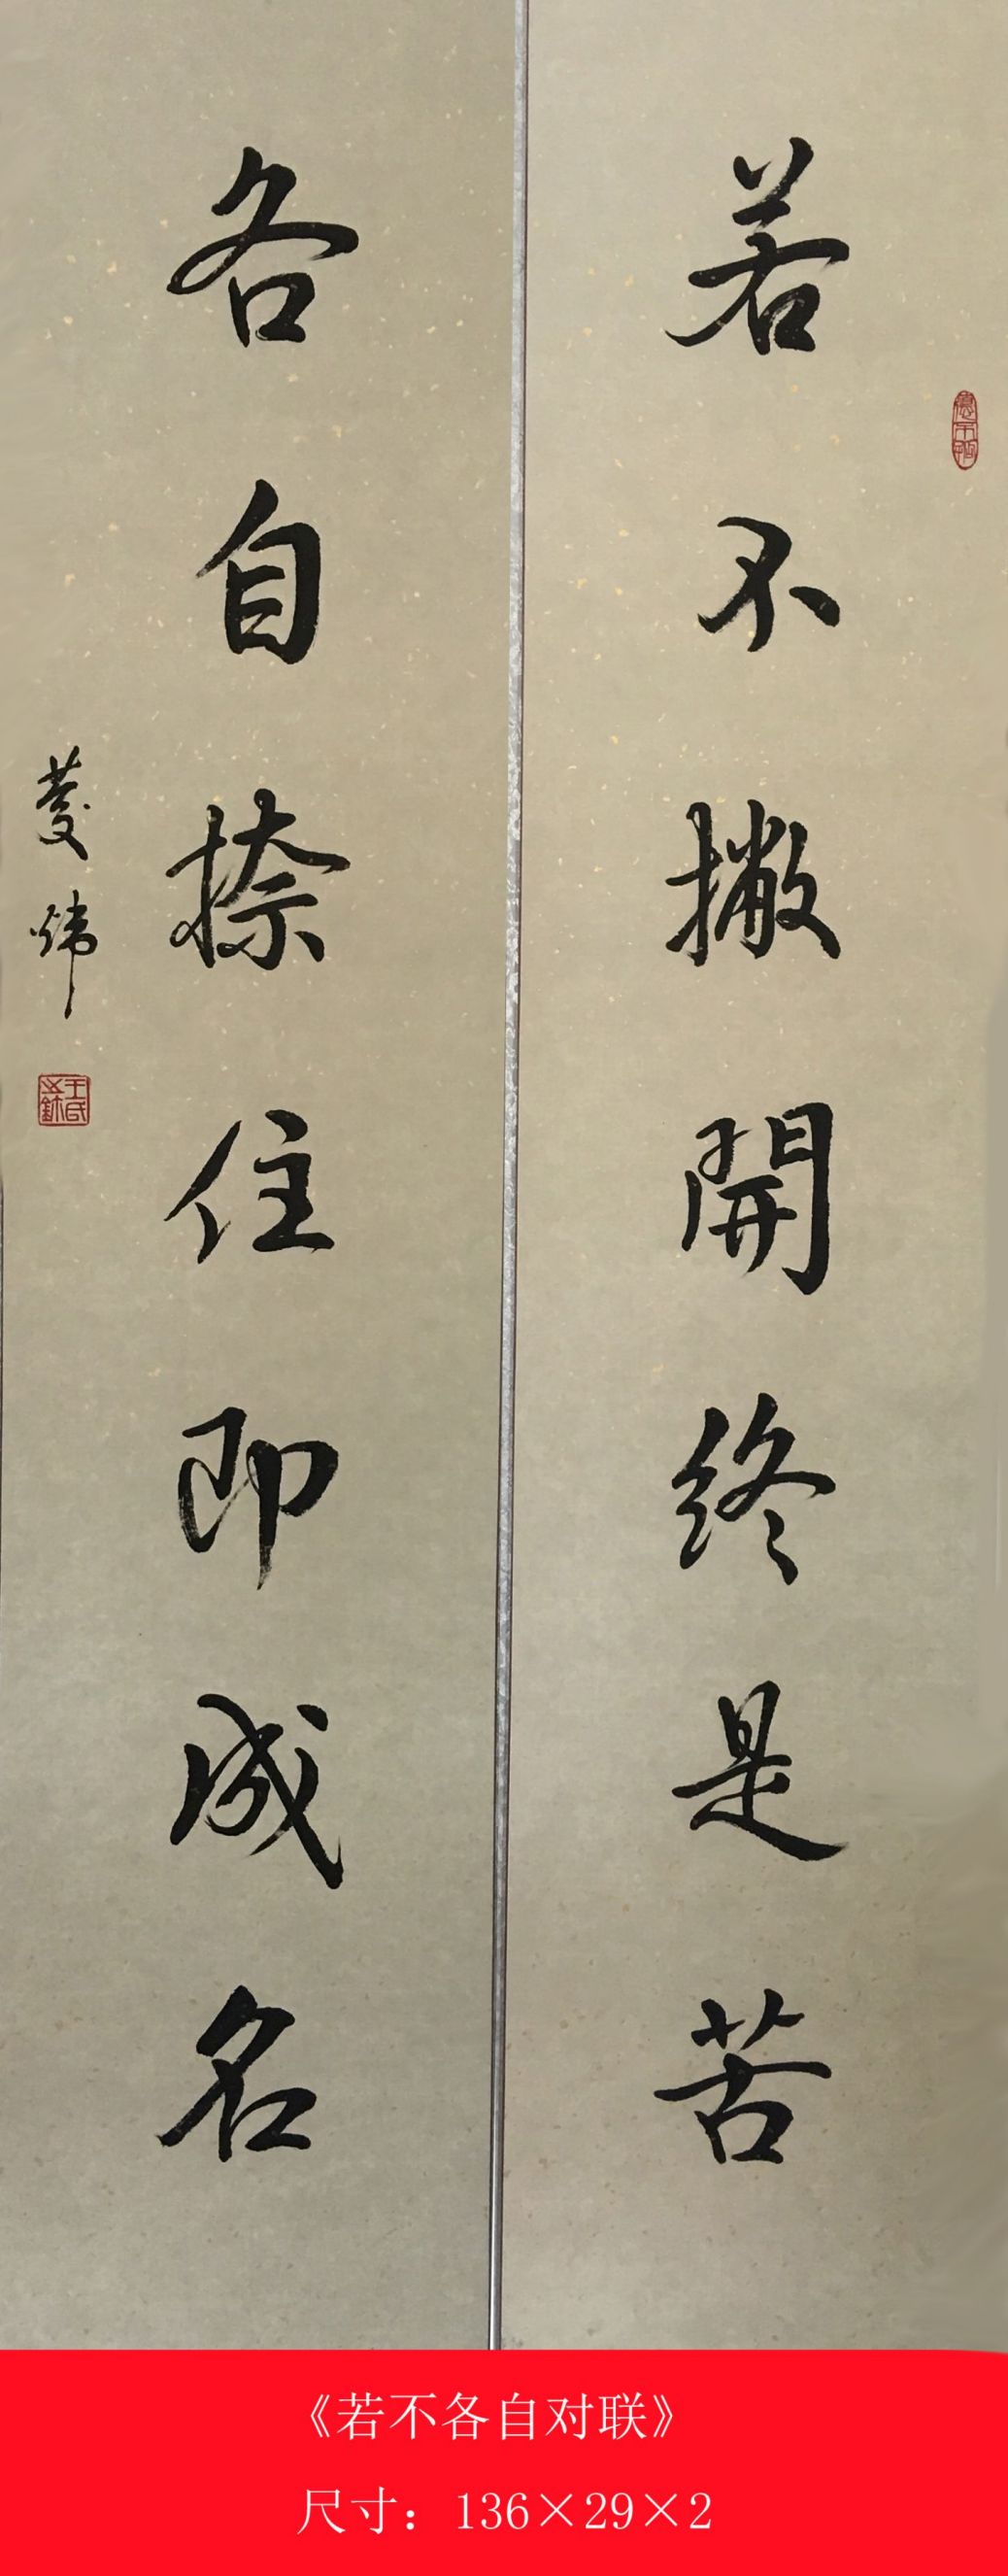 若不撇開终是苦
各自捺住即成名
《若不各自对联》
尺寸：136×29×2